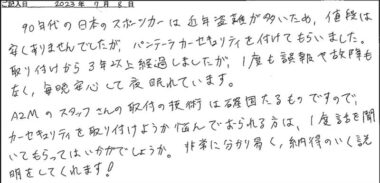 ご記入日 2023年 7月 8日
90年代の日本のスポーツカーは近年盗難が多いため、値段は
安くありませんでしたが、パンテーラカーセキュリティを付けてもらいました。
取り付けから3年以上経過しましたが、1度も誤報や故障も
なく、毎晩安心して夜眠れています。
A2Mのスタッフさんの取付の技術は確固たるものですので、
カーセキュリティを取り付けようか悩んでおられる方は、1度話を聞
いてもらってはいかがでしょうか。非常に分かり易く、納得のいく説
明をしてくれます!